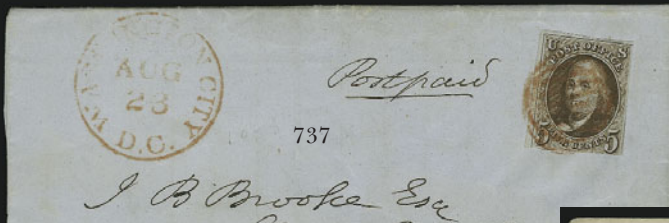 WASHINGTON CITY
AUG
23
D.C.
Postpaid
U S
POST OFFICE
5 FIVE CENTS 5
737
J B Brooke Esq